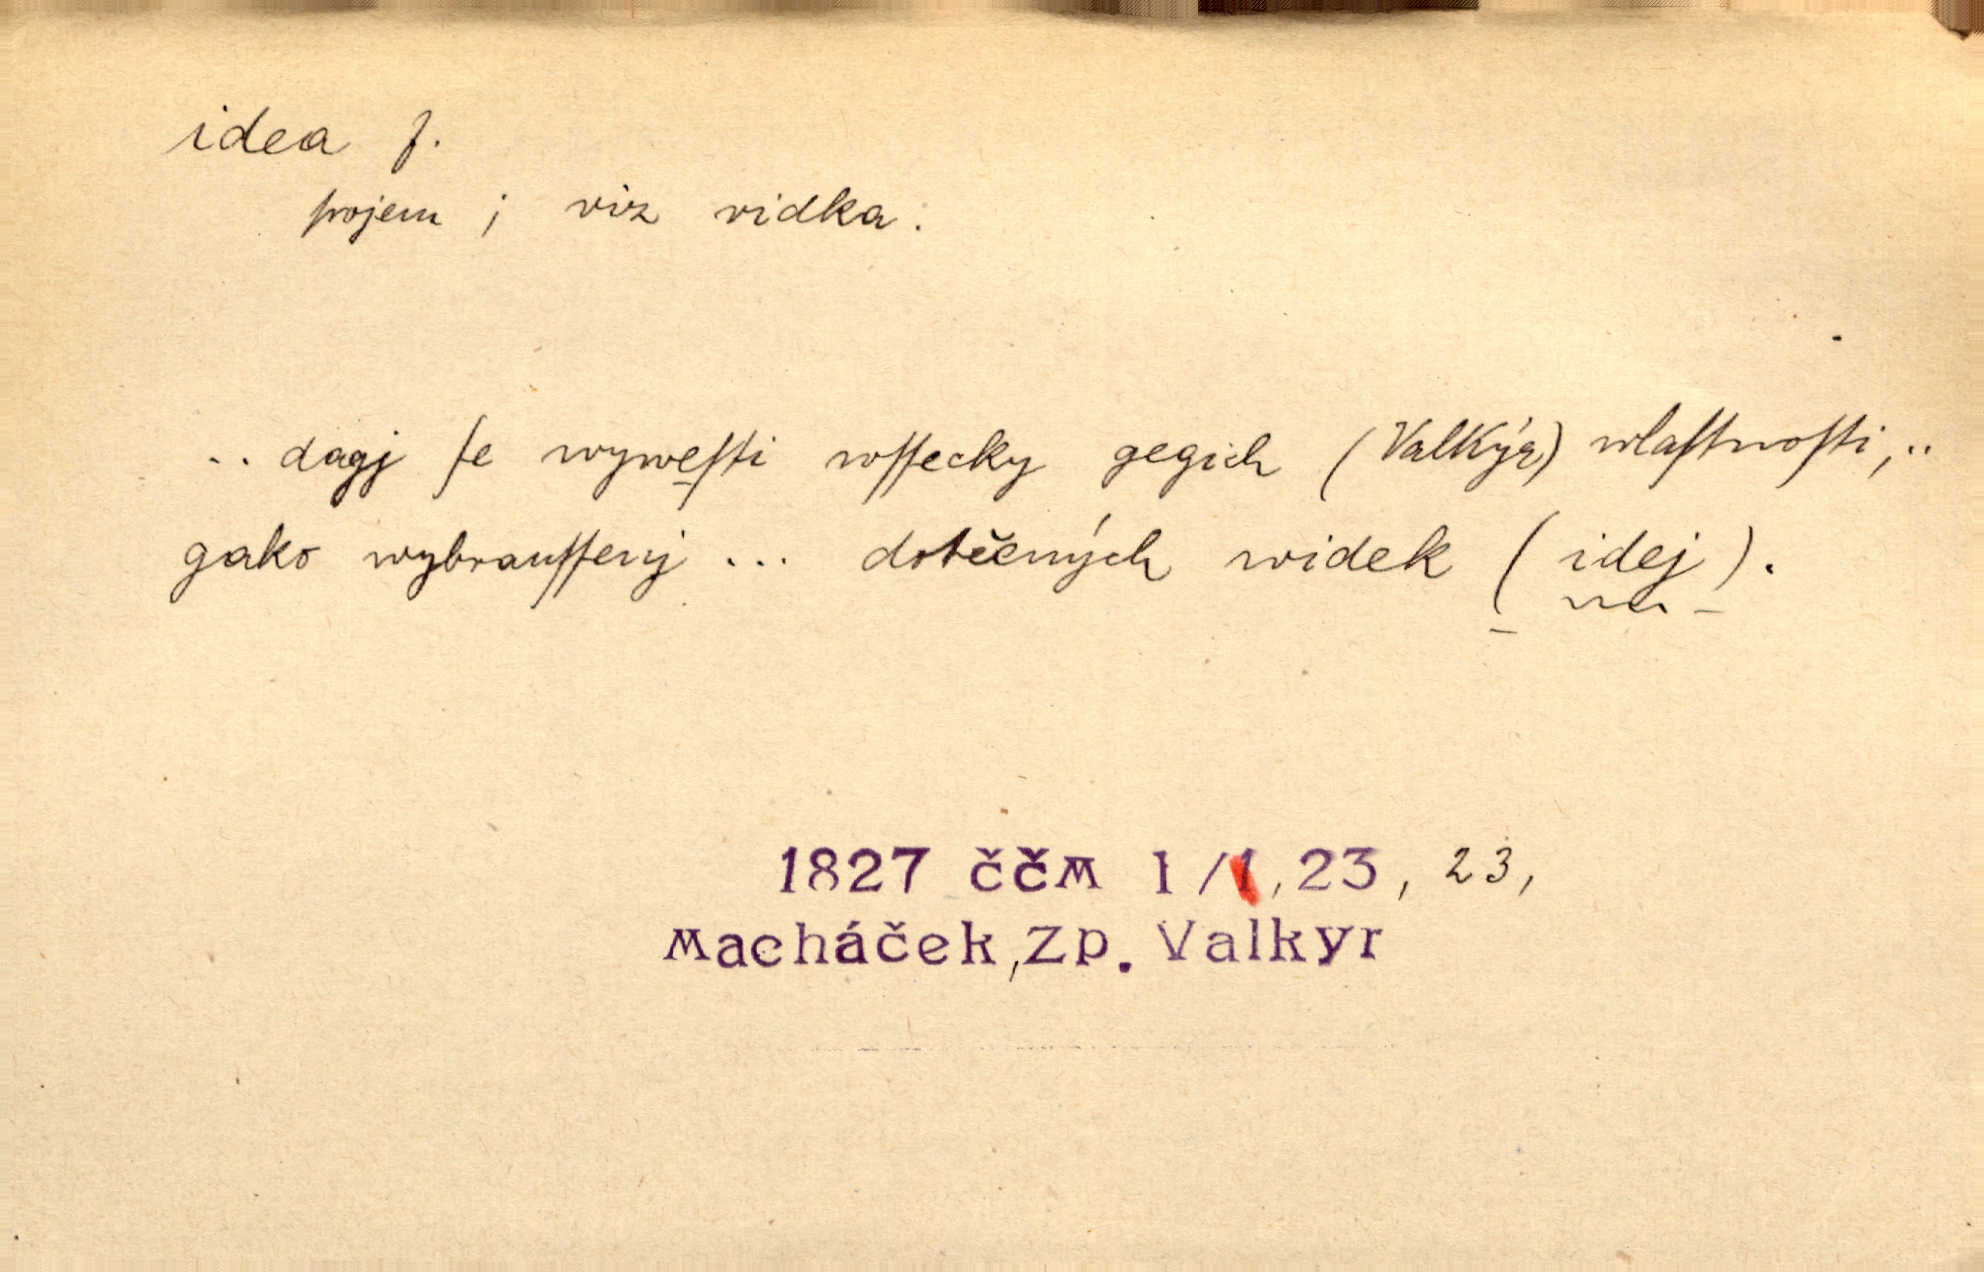 idea f.
pojem ; viz vidka.
.. dagj ſe wyweſti wſſecky gegich (Valkýr) wlaſtnoſti,..
gako wybrauſſenj ... dotčených widek (idej).
1827 ččm 1/1,23, 23,
Macháček,Zp. Valkyr